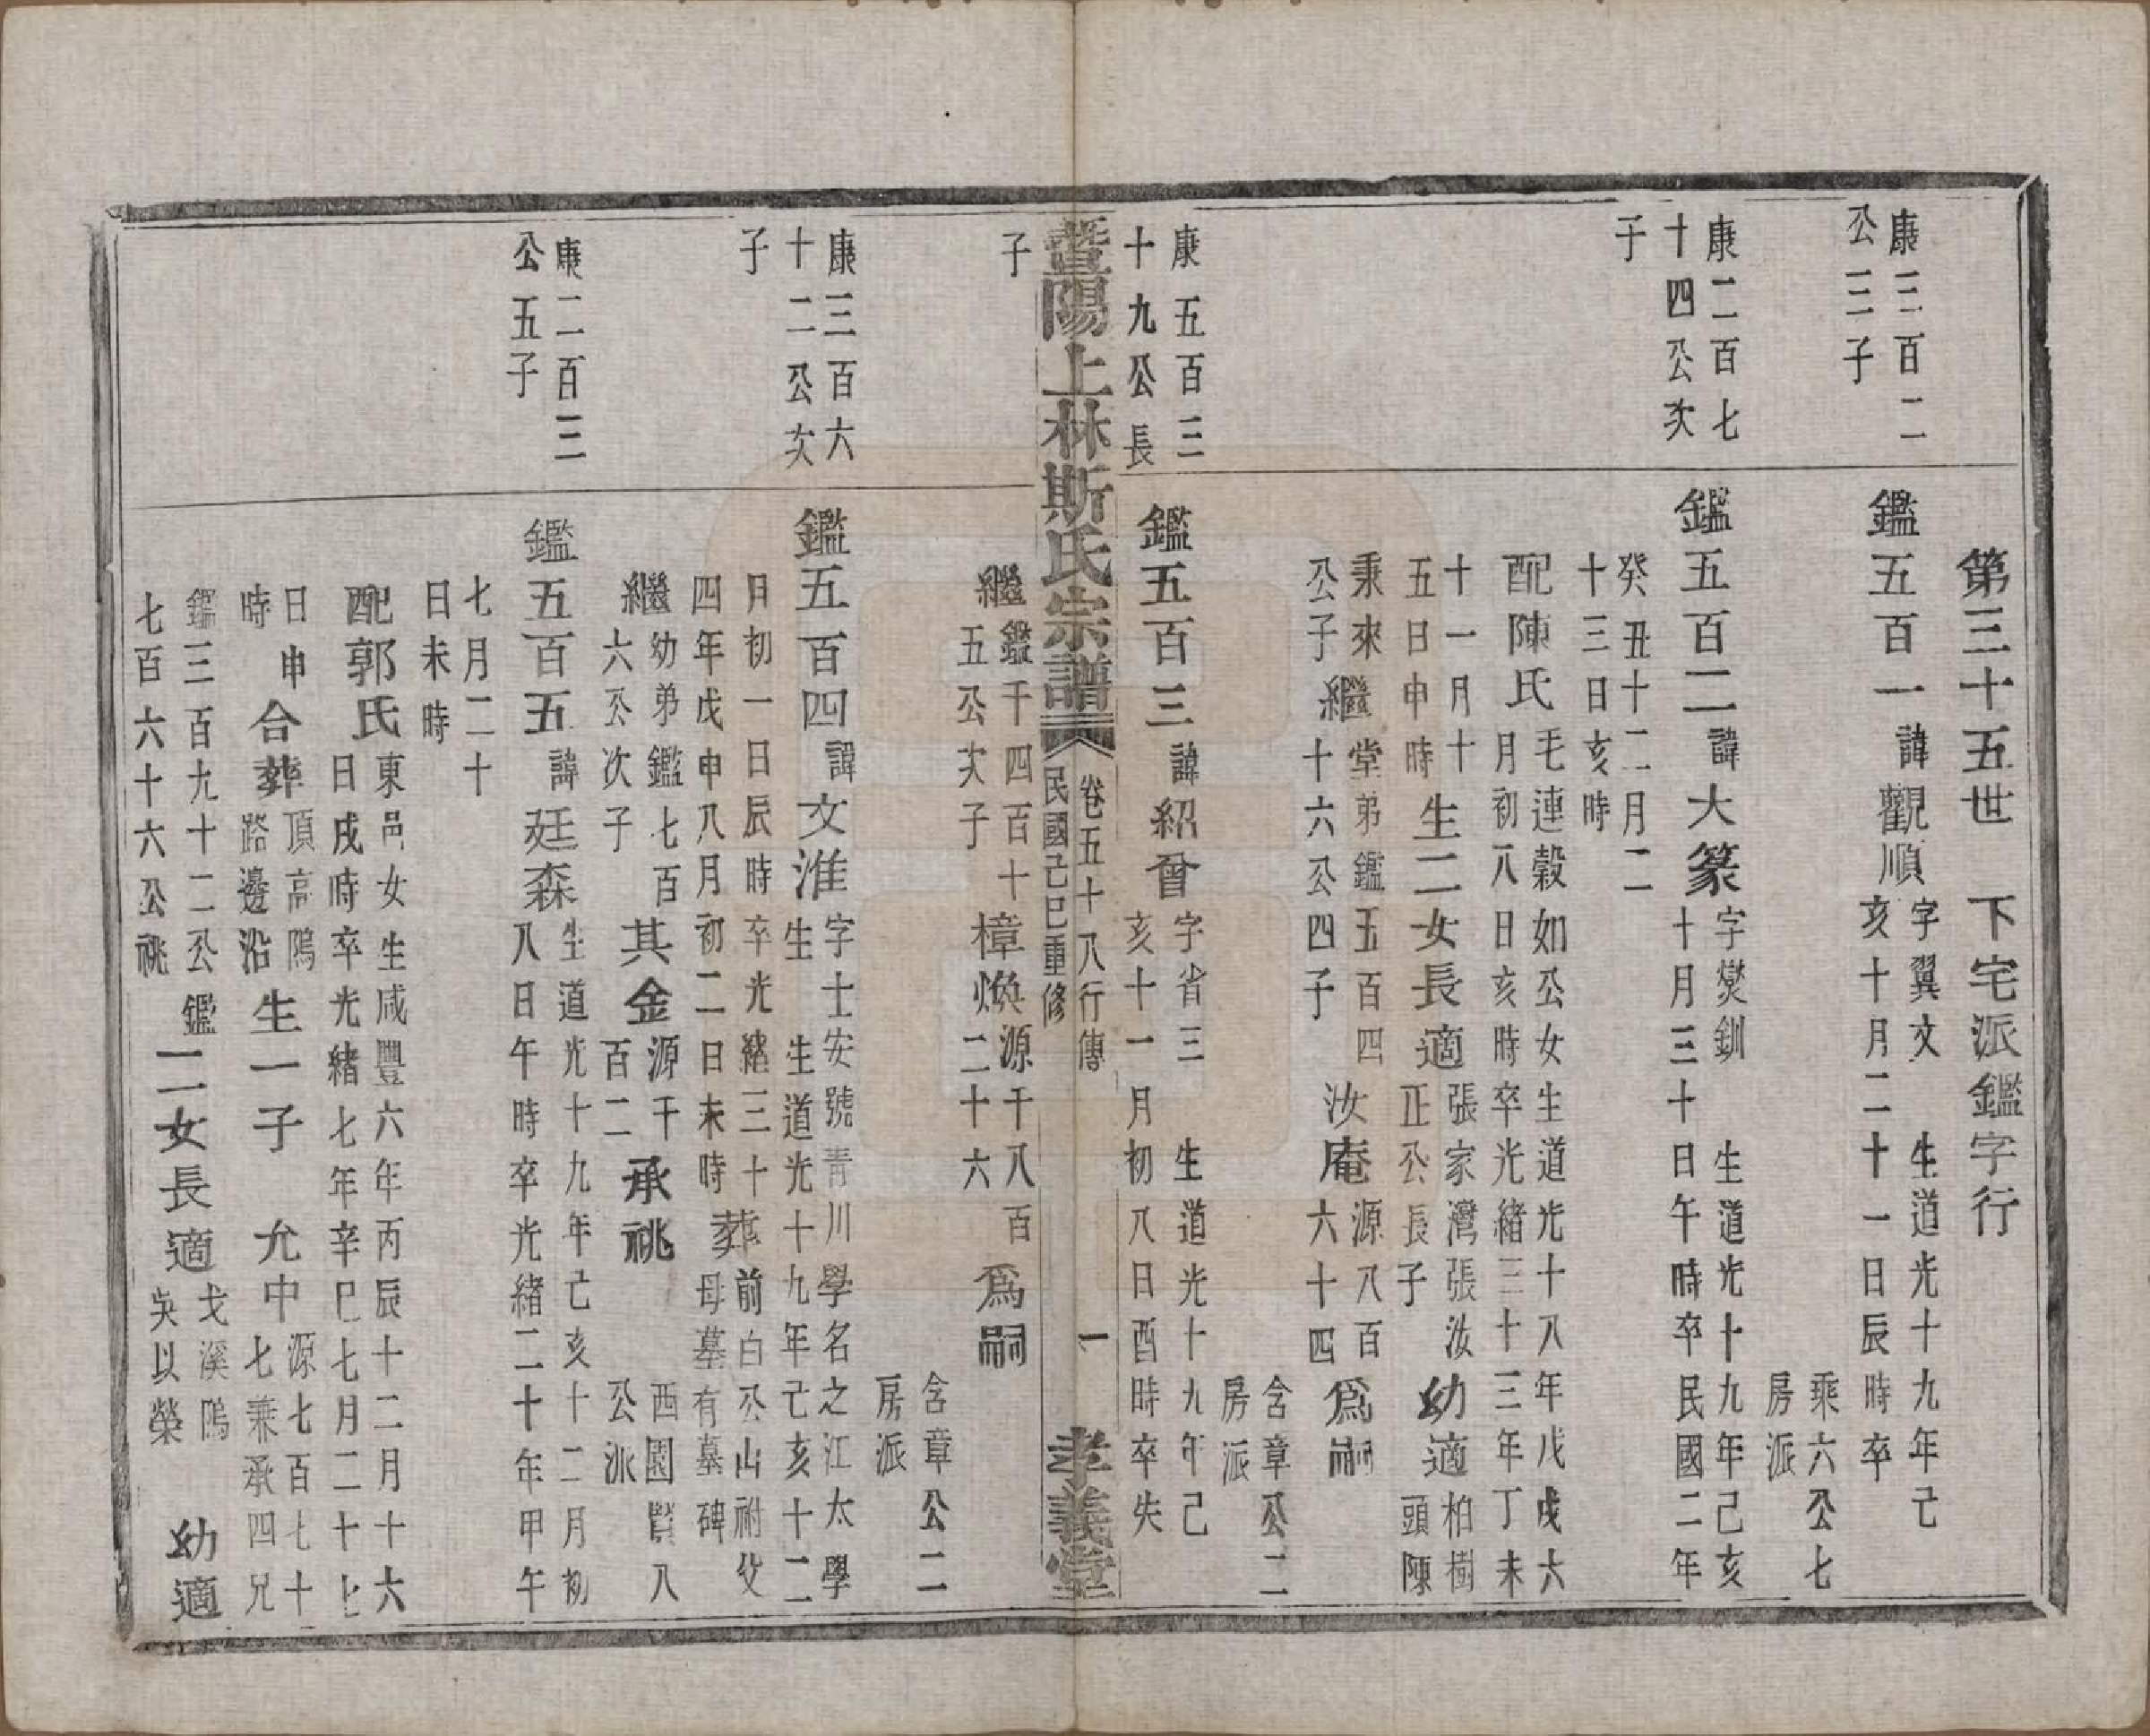 第三十五世　下宅派鑑字行
康三百二
公三子
鑑五百一諱觀順
字翼文　生道光十九年己
亥十月二十一日辰時卒
乘六公七
房派
康二百七
十四公次
子
鑑五百二諱大篆
字爕釧　生道光十九年己亥
十月三十日午時卒民國二年
癸丑十二月二
十三日亥時
配陳氏
毛連穀如公女生道光十八年戊戌六
月初八日亥時卒光緒三十三年丁未
十一月十
五日申時
生二女長適
張家灣張汝
正公長子
幼適
柏樹
頭陳
秉來
公子
繼
堂弟鑑五百四
十六公四子
汝庵
源八百
六十四
爲嗣
含章公二
房派
康五百三
十九公長
子
鑑五百三諱紹曾
字省三　生道光十九年己
亥十一月初八日酉時卒失
暨陽上林斯氏宗譜
卷五十八行傳
民國己巳重修
一
孝義堂
繼
鑑千四百十
五公次子
樟煥
源千八百
二十六
爲嗣
含章公二
房派
康三百六
十二公次
子
鑑五百四諱文淮
字士安號青川學名之江太學
生　生道光十九年己亥十二
月初一日辰時卒光緒三十
四年戊申八月初二日未時
葬
前白公山祔父
母墓有墓碑
繼
幼弟鑑七百
六公次子
其金
源千
百二
承祧
西園賢八
公派
康二百三
公五子
鑑五百五諱廷森
生道光十九年己亥十二月初
八日午時卒光緒二十年甲午
七月二十
日未時
配郭氏
東邑女生咸豐六年丙辰十二月十六
日戌時卒光緒七年辛巳七月二十七
日申
時
合葬
頂高隖
路邊沿
生一子　允中
源七百七十
七兼承四兄
鑑三百九十二公鑑
七百六十六公祧
二女長適
戈溪隖
吳以榮
幼適